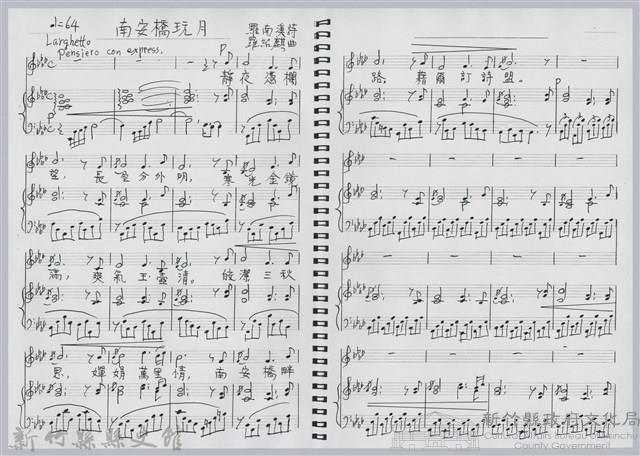 ♩=64
南安橋玩月
羅南溪詩
Larghetto
Pensiero con express.
羅紹麒曲
p
靜夜憑欄
p
望，長空分外明，寒光金鏡
滿，爽氣玉壺清。皎潔三秋
思，嬋娟萬里情，南安橋畔
路，藉爾訂詩盟。
p
新竹縣縣史館
新竹縣政府文化局
Cultural Affairs Bureau of Hsinchu
County Government